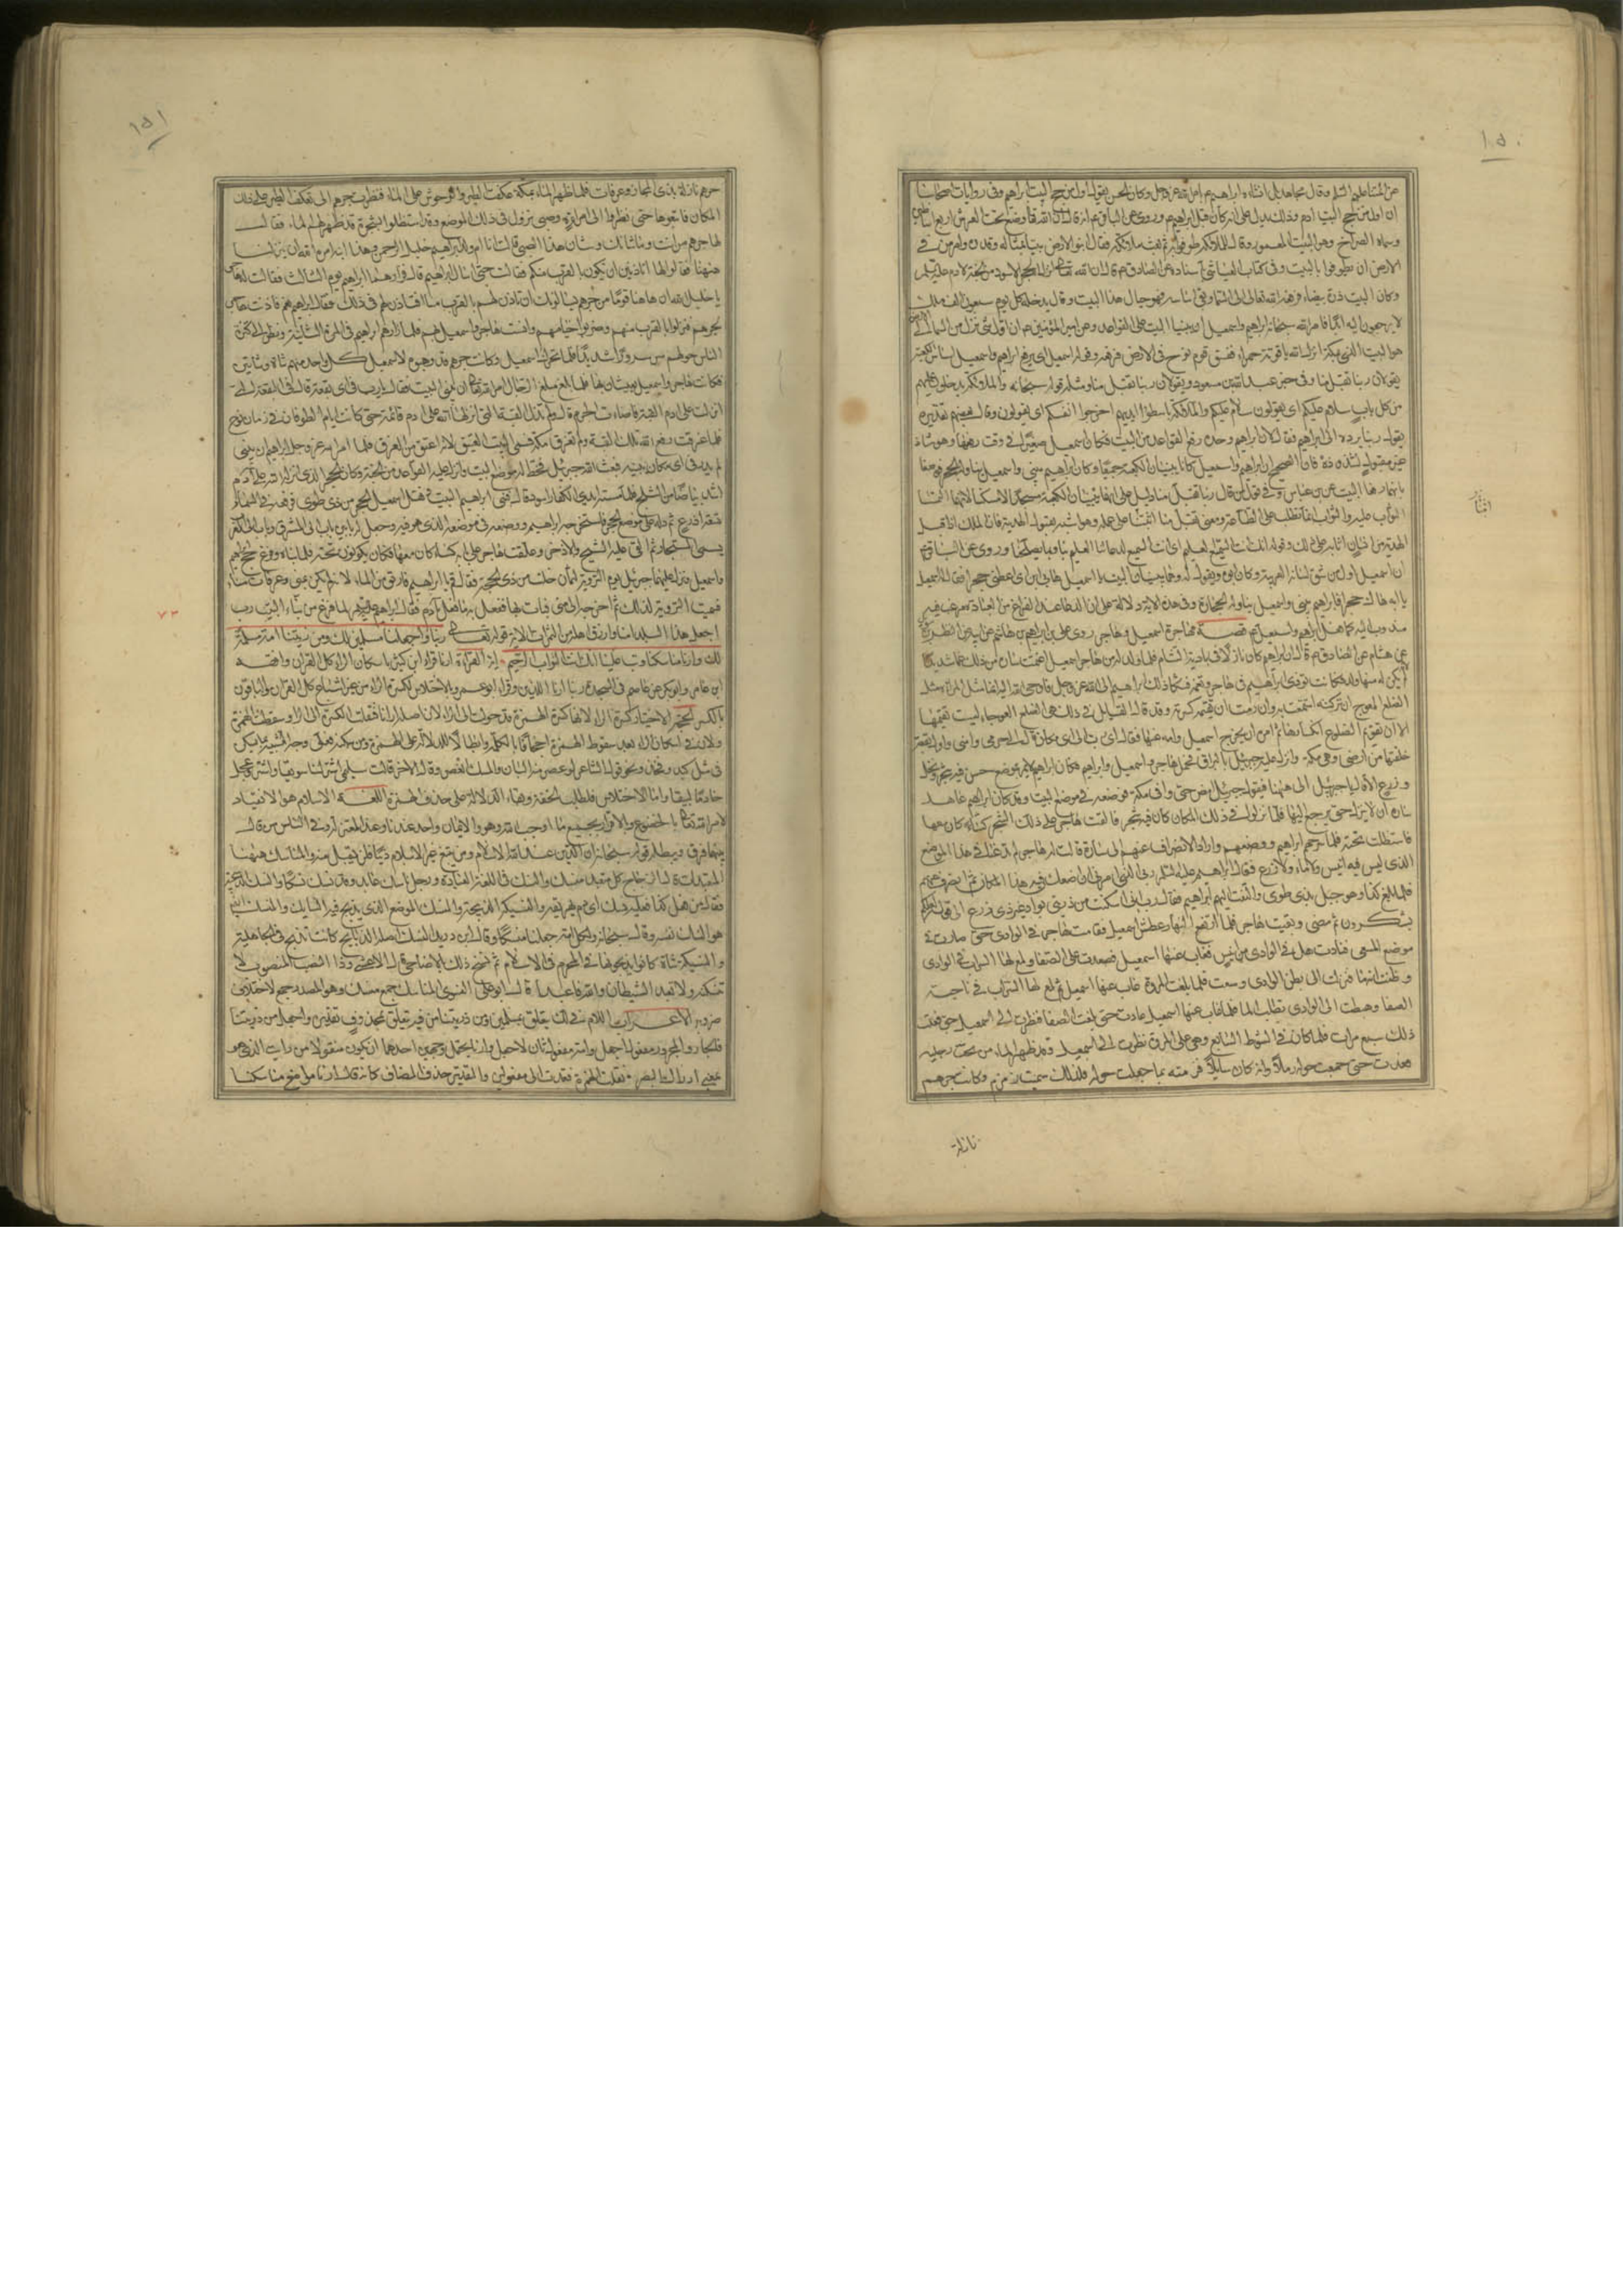 ١٥٠
عن ائمتنا عليهم السلم وقال مجاهد بل انشأه ابراهيم ع بامر الله عز وجل وكان الحسن يقول اول من حج البيت ابراهيم وفي روايات اصحابنا
ان اول من حج البيت ادم وذلك يدل على انه كان قبل ابراهيم وروي عن الباقر ع انه قال ان الله وضع تحت العرش اربع اساطين
وسماه الضراح وهو البيت المعمور وقال للملائكة طوفوا به ثم بعث ملائكة فقال ابنوا في الارض بيتا بمثاله وقدره وامر من في
الارض ان يطوفوا بالبيت وفي كتاب العياشي باسناده عن الصادق ع قال ان الله تعالى انزل الحجر الاسود من الجنة لادم
وكان البيت درة بيضاء فرفعه الله تعالى الى السماء وبقي اساسه فهو حيال هذا البيت وقال يدخله كل يوم سبعون الف ملك
لا يرجعون اليه ابدا فامر الله سبحانه ابراهيم واسمعيل ان يبنيا البيت على القواعد وعن امير المؤمنين ع ان اول شئ نزل من السماء الى الارض
هو البيت الذي بمكة انزله الله ياقوتة حمراء ففسق قوم نوح في الارض فرفعه وقوله واسمعيل اي يرفع ابراهيم واسمعيل اساس الكعبة
يقولان ربنا تقبل منا وفي حرف عبد الله بن مسعود ويقولان ربنا تقبل منا ومثله قوله سبحانه والملائكة يدخلون عليهم
من كل باب سلام عليكم اي يقولون سلام عليكم والملائكة باسطوا ايديهم اخرجوا انفسكم اي يقولون وقال بعضهم تقديره
يقول ربنا برده الى ابراهيم فقال كان ابراهيم وحده رفع القواعد من البيت وكان اسمعيل صغيرا في وقت رفعها وهو شاذ
غير مقبول لشذوذه فان الصحيح ان ابراهيم واسمعيل كانا يبنيان الكعبة جميعا وكان ابراهيم يبني واسمعيل يناوله الحجر فوصفا
بانهما رفعا البيت عن ابن عباس وفي قوله ربنا تقبل منا دليل على انهما بنيا الكعبة مسجدا لا مسكنا لانهما التمسا
الثواب عليه والثواب انما يطلب على الطاعة ومعنى تقبل منا اثبنا على عمله وهو مشبه بقبول الهدية فان الملك اذا قبل
الهدية من انسان اثابه على ذلك وقوله انك انت السميع العليم اي انت السميع لدعائنا العليم بنا وبما يصلحنا وروي عن الباقر ع
ان اسمعيل اول من شق لسانه بالعربية وكان ابوه يقول له وهما يبنيان البيت يا اسمعيل هابي ابن اي اعطني حجرا فقال له اسمعيل
يا ابه هاك حجرا فابراهيم يبني واسمعيل يناوله الحجارة وفي هذه الاية دلالة على ان الدعاء عند الفراغ من العبادة مرغب فيه
مندوب اليه كما فعل ابراهيم واسمعيل ع قصة مهاجرة اسمعيل وهاجر روى علي بن ابراهيم بن هاشم عن ابيه عن النضر بن سويد
عن هشام عن الصادق ع قال ان ابراهيم كان نازلا في بادية الشام فلما ولد له من هاجر اسمعيل اغتمت سارة من ذلك غما شديدا
لم يكن له منها ولد فكانت تؤذي ابراهيم في هاجر وتغمه فشكا ذلك ابراهيم الى الله عز وجل فاوحى الله اليه انما مثل المرأة مثل
الضلع المعوج ان تركته استمتعت به وان رمت ان تقيمه كسرته وقد قال القايل في ذلك هي الضلع العوجاء لست تقيمها
الا ان تقويم الضلوع انكسارها ثم امره ان يخرج اسمعيل وامه عنها فقال اي رب الى اي مكان قال الى حرمي وامني واول بقعة
خلقتها من ارضي وهي مكة وانزل عليه جبرئيل بالبراق فحمل هاجر واسمعيل وابراهيم فكان ابراهيم لا يمر بموضع حسن فيه شجر ونخل
وزرع الا قال يا جبرئيل الى هاهنا فيقول جبرئيل امض حتى وافى مكة فوضعه في موضع البيت وقد كان ابراهيم عاهد
سارة ان لا ينزل حتى يرجع اليها فلما نزلوا في ذلك المكان كان فيه شجر فالقت هاجر على ذلك الشجر كساء كان معها
فاستظلت تحته فلما سرحهم ابراهيم ووضعهم واراد الانصراف عنهم الى سارة قالت له هاجر لم تدعنا في هذا الموضع
الذي ليس فيه انيس ولا ماء ولا زرع فقال ابراهيم عليه السلم ربي الذي امرني ان اضعكم في هذا المكان ثم انصرف عنهم
فلما بلغ كداء وهو جبل بذي طوى والتفت اليهم ابراهيم فقال رب اني اسكنت من ذريتي بواد غير ذي زرع الى قوله لعلهم
يشكرون ثم مضى وبقيت هاجر فلما ارتفع النهار عطش اسمعيل فقامت هاجر في الوادي حتى صارت في
موضع المسعى فنادت هل في الوادي من انيس فغاب عنها اسمعيل فصعدت على الصفا ولمع لها السراب في الوادي
وظنت انه ماء فنزلت الى بطن الوادي وسعت فلما بلغت المروة غاب عنها اسمعيل ثم لمع لها السراب في ناحية
الصفا وهبطت الى الوادي تطلب الماء فلما غاب عنها اسمعيل عادت حتى بلغت الصفا فنظرت الى اسمعيل حتى فعلت
ذلك سبع مرات فلما كان في الشوط السابع وهي على المروة نظرت الى اسمعيل وقد ظهر الماء من تحت رجليه
فعدت حتى جمعت حوله رملا وانه كان سايلا فزمته بما جعلت حوله فلذلك سميت زمزم وكانت جرهم
نازلة
١٥١
جرهم نازلة بذي المجاز وعرفات فلما ظهر الماء بمكة عكفت الطير والوحوش على الماء فنظرت جرهم الى تعكف الطير على ذلك
المكان فاتبعوها حتى نظروا الى امرأة وصبي نزول في ذلك الموضع وقد استظلوا بشجرة قد ظهر لهم الماء فقال
لها جرهم من انت وما شانك وشان هذا الصبي قالت انا ام ولد ابراهيم خليل الرحمن وهذا ابنه امره الله ان ينزلنا
هيهنا فقالوا لها اتاذنين ان نكون بالقرب منكم فقالت حتى اسال ابراهيم قال فزارهما ابراهيم يوم الثالث فقالت له هاجر
يا خليل الله ان هاهنا قوما من جرهم يسالونك ان تاذن لهم حتى يكونوا بالقرب منا افتاذن لهم في ذلك فقال ابراهيم نعم فاذنت هاجر
لجرهم فنزلوا بالقرب منهم وضربوا خيامهم وانست هاجر واسمعيل بهم فلما زارهم ابراهيم في المرة الثانية ونظر الى كثرة
الناس حولهم سر سرورا شديدا فلما تحرك اسمعيل وكانت جرهم قد وهبوا لاسمعيل كل واحد منهم شاة وشاتين
فكانت هاجر واسمعيل يعيشان بها فلما بلغ مبلغ الرجال امر الله تعالى ابراهيم ان يبني البيت فقال يا رب في اي بقعة قال في البقعة التي
انزلت على ادم القبة فاضاءت الحرم قال ولم تزل القبة التي انزلها الله على ادم قائمة حتى كانت ايام الطوفان في زمان نوح
فلما غرقت رفع الله تلك القبة ولم تغرق مكة فسمي البيت العتيق لانه اعتق من الغرق فلما امر الله عز وجل ابراهيم ان يبني
لم يدر في اي مكان يبنيه فبعث الله جبرئيل فخط له موضع البيت وانزل عليه القواعد من الجنة وكان الحجر الذي انزله الله على ادم
اشد بياضا من الثلج فلما مسته ايدي الكفار اسود قال فبنى ابراهيم البيت ونقل اسمعيل الحجر من ذي طوى فرفعه في السماء
تسعة اذرع ثم دله على موضع الحجر فاستخرجه ابراهيم ووضعه في موضعه الذي هو فيه وجعل له بابين باب الى المشرق وباب الى المغرب
يسمى المستجار ثم القى عليه الشيح والاذخر وعلقت هاجر على بابه كساء كان معها فكانوا يكونون تحته فلما بناه وفرغ حج ابراهيم
واسمعيل ونزل عليهما جبرئيل يوم التروية لثمان خلت من ذي الحجة فقال قم يا ابراهيم فارتو من الماء لانه لم يكن بمنى وعرفات ماء
فسميت التروية لذلك ثم اخرجه الى منى فبات بها ففعل به ما فعل بادم فقال ابراهيم عليه السلم لما فرغ من بناء البيت رب
اجعل هذا البلد امنا وارزق اهله من الثمرات الاية قوله تعالى ربنا واجعلنا مسلمين لك ومن ذريتنا امة مسلمة
لك وارنا مناسكنا وتب علينا انك انت التواب الرحيم اية القراءة ارنا قراء ابن كثير باسكان الراء كل القران وافقه
ابن عامر وابو بكر عن عاصم في السجدة ربنا ارنا اللذين وقراء ابو عمرو بالاختلاس لكسرة الراء من غير اشباع كل القران والباقون
بالكسر الحجة الاختيار كسرة الراء لانها كسرة الهمزة قد حولت الى الراء لان اصله ارانا فنقلت الكسرة الى الراء وسقطت الهمزة
ولان في اسكان الراء بعد سقوط الهمزة اجحافا بالكلمة وابطالا للدلالة على الهمزة ومن سكنه فعلى وجه التشبيه بما يسكن
في مثل كبد وفخذ ونحو قول الشاعر لو عصر منه البان والمسك انعصر وقال الاخر قالت سليمى اشتر لنا سويقا واشتر وعجل
خادما لبيقا واما الاختلاس فلطلب الخفة وبقاء الدلالة على حذف الهمزة اللغة الاسلام هو الانقياد
لامر الله تعالى بالخضوع والاقرار بجميع ما اوجب الله وهو والايمان واحد عندنا وعند المعتزلة وفي الناس من قال
بينهما فرق ويبطله قوله سبحانه ان الدين عند الله الاسلام ومن يبتغ غير الاسلام دينا فلن يقبل منه والمناسك هيهنا
المتعبدات قال الزجاج كل متعبد منسك والنسك في اللغة العبادة ورجل ناسك عابد وقد نسك نسكا والنسك الذبيحة
فقال من فعل كذا فعليه نسك اي دم يهريقه والنسيكة الذبيحة والمنسك الموضع الذي يذبح فيه النسايك والمنسك ايضا
هو النسك نفسه قال سبحانه ولكل امة جعلنا منسكا وقال ابن دريد النسك اصله الذبايح كانت تذبح في الجاهلية
والنسيكة شاة كانوا يذبحونها في المحرم في الاسلام ثم نسخ ذلك بالاضاحي قال الاعشى وذا النصب المنصوب لا
تنسكنه ولا تعبد الشيطان والله فاعبدا قال ابو علي الفسوي المناسك جمع منسك وهو المصدر جمع لاختلاف
ضروبه الاعراب اللام في لك يتعلق بمسلمين ومن ذريتنا من فيه يتعلق بمحذوف تقديره واجعل من ذريتنا
فالجار والمجرور مفعول اجعل وامة مفعول ثان لاجعل وارنا يحتمل وجهين احدهما ان يكون منقولا من رايت الذي هو
بمعنى ادراك البصر نقلت بالهمزة فتعدت الى مفعولين والتقدير حذف المضاف كانه قال ارنا مواضع مناسكنا
٧٣